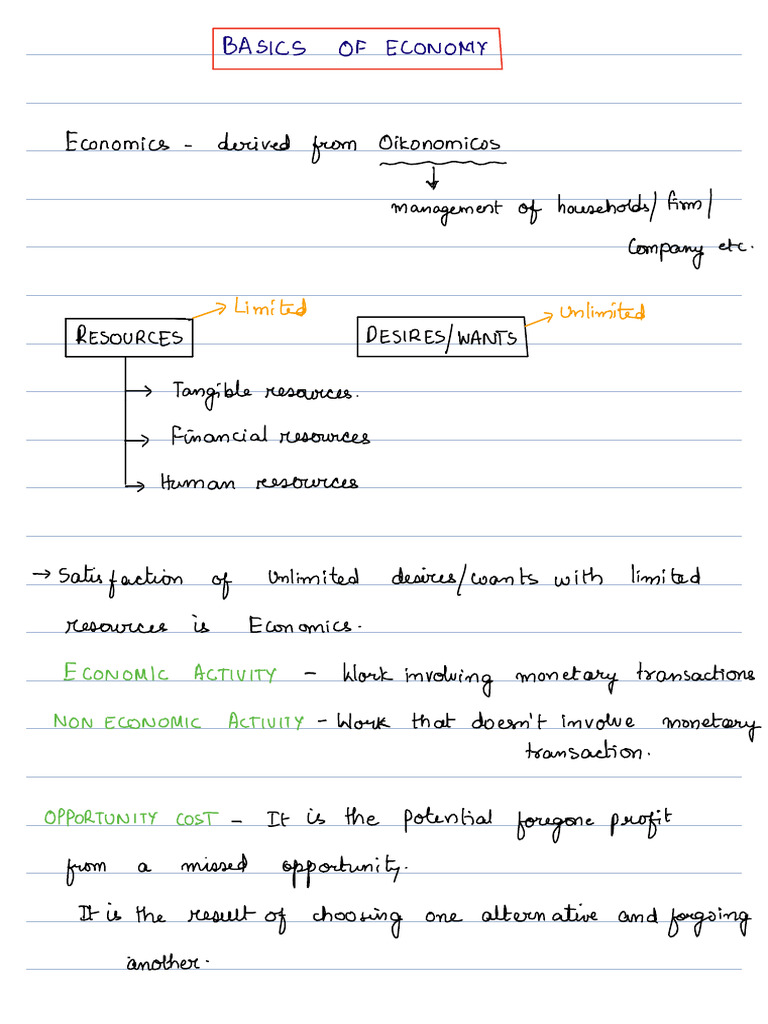 BASICS OF ECONOMY
Economics - derived from Oikonomicos
↓
management of households/firm/
Company etc.
→ Limited
→ Unlimited
RESOURCES
DESIRES/WANTS
→ Tangible resources.
→ Financial resources
→ Human resources
→ Satisfaction of Unlimited desires/wants with limited
resources is Economics.
ECONOMIC ACTIVITY - Work involving monetary transactions
NON ECONOMIC ACTIVITY - Work that doesn't involve monetary
transaction.
OPPORTUNITY COST - It is the potential foregone profit
from a missed opportunity.
It is the result of choosing one alternative and forgoing
another.